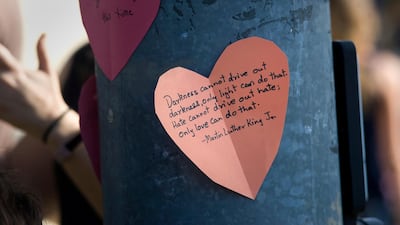 Darkness cannot drive out
darkness, only light can do that.
Hate cannot drive out hate;
only love can do that.
-Martin Luther King Jr.